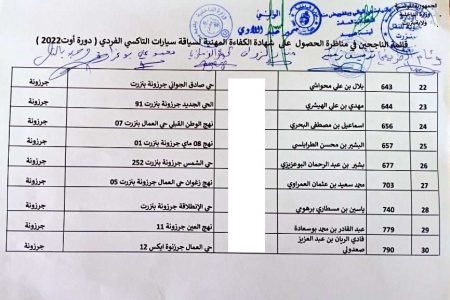 قائمة الناجحين في مناظرة الحصول على شهادة الكفاءة المهنية لسياقة سيارات التاكسي الفردي ( دورة أوت2022)
22 643 بلال بن علي محواشي حي صادق الجواني جرزونة بنزرت جرزونة
23 644 مهدي بن علي الهيشري الحي الجديد جرزونة بنزرت 91 جرزونة
24 656 اسماعيل بن مصطفى البحري نهج الوطن القبلي حي العمال بنزرت 07 جرزونة
25 657 البشير بن محسن الطرابلسي نهج 08 ماي جرزونة بنزرت 01 جرزونة
26 677 بشير بن عبد الرحمان البوعزيزي حي الشمس جرزونة بنزرت 252 جرزونة
27 703 محمد سعيد بن عثمان العمراوي نهج زغوان حي العمال جرزونة بنزرت 05 جرزونة
28 740 ياسين بن مسطاري برهومي حي الإنطلاقة جرزونة بنزرت جرزونة
29 779 عبد القادر بن محمد بوسعادة نهج العين جرزونة 11 جرزونة
30 790 فادي الريان بن عبد العزيز
صعدولي حي العمال جرزونة ايكس 12 جرزونة